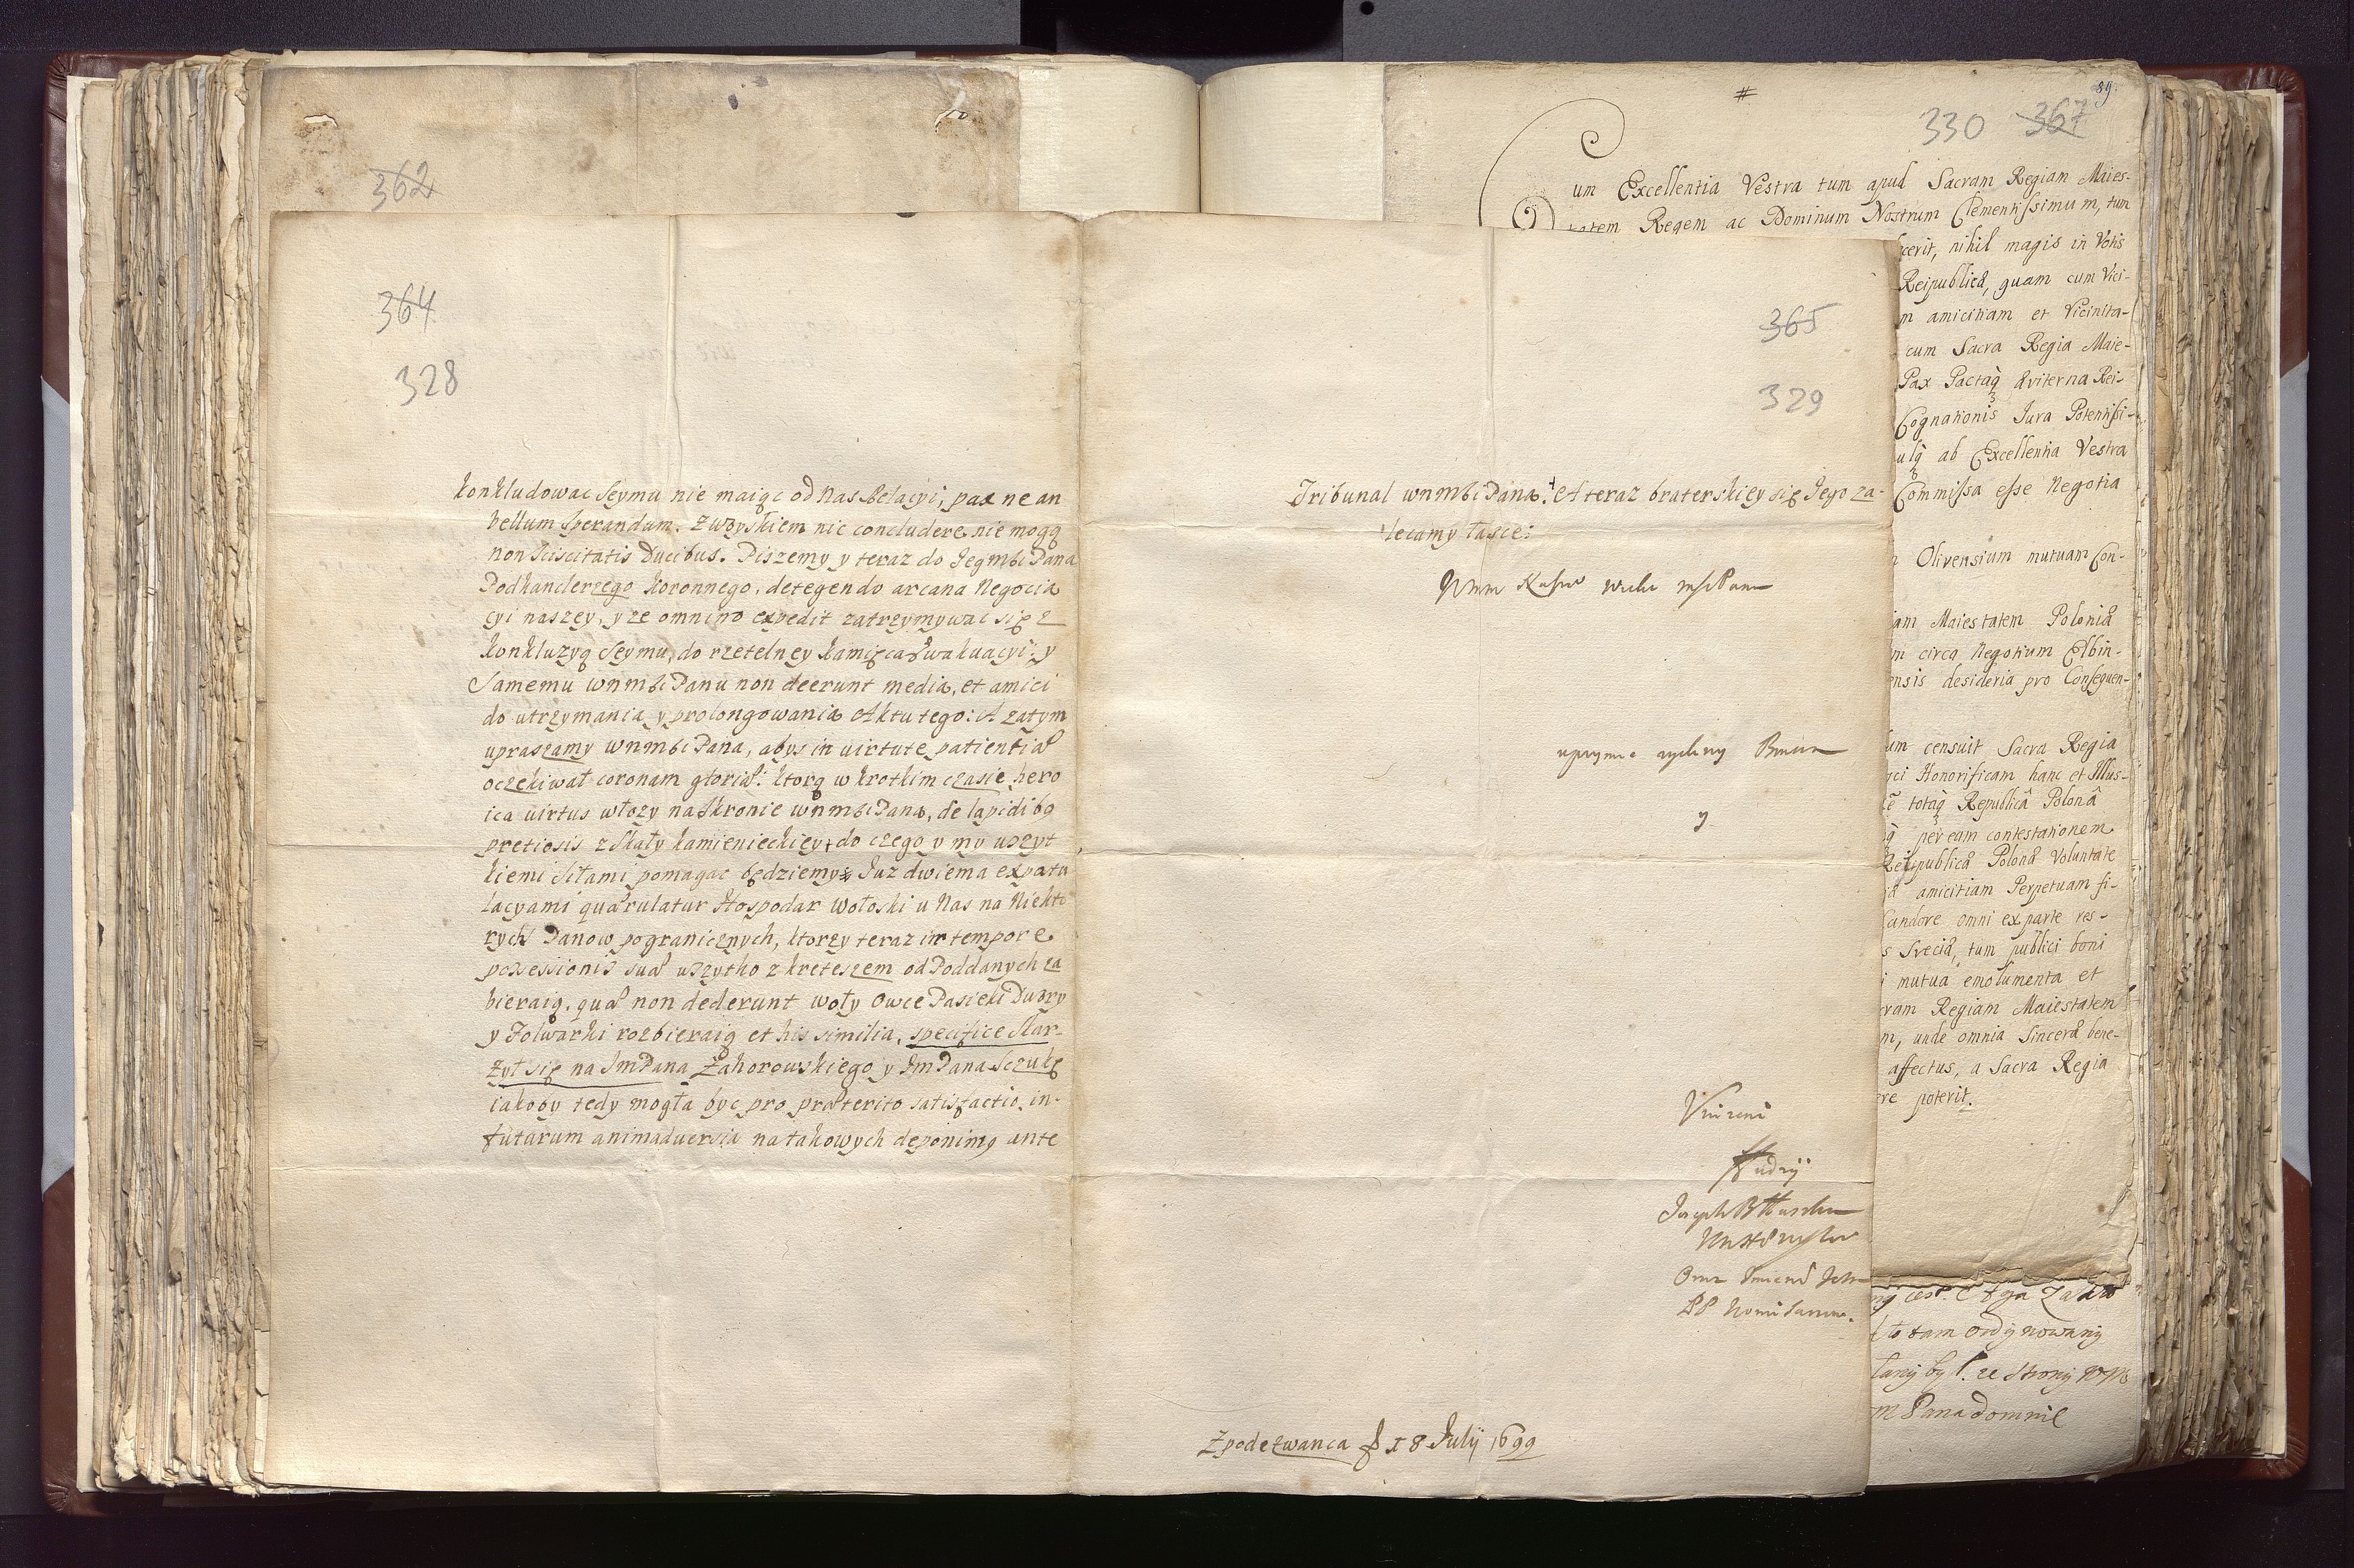 362
364
328
konkludowac Seymu nie maiąc od Nas Relacyi, pax ne an
bellum sperandum. Zwszyskiem nic concludere nie mogą
non sciscitatis Ducibus. Piszemy y teraz do Jegmsci Pana
Podkanclerzego Koronnego, detegendo arcana Negocia
cyi naszey, y ze omnino expedit zatrzymywac się z
konkluzyą Seymu, do rzetelney Kamieca Ewakuacyi: y
Samemu wnmsci Panu non deerunt media, et amici
do utrzymania y prolongowania Aktu tego: A zatym
upraszamy wnmsci Pana, abys in uirtute patientiæ
oczekiwał coronam gloriæ: ktorą w krotkim czasie hero
ica uirtus włozy na skronie wnmsci Pana, de lapidibg
pretiosis z Skały kamienieckiey, do czego y my wszyt
kiemi Siłami pomagac będziemy. Juz dwiema expostu
lacyami quærulatur Hospodar wołoski u Nas na Niekto
rych Panow pogranicznych, ktorzy teraz in tempore
possessionis suæ wszytko z kreteszem od Poddanych za
bieraią, quæ non dederunt woły owce Pasieki Dubry
y Folwarki rozbieraią et his similia, specifice skar-
zył się na JmPana Zahorowskiego y JmPana Sczukę
iakoby tedy mogła byc pro præterito satisfactio, in-
futurum animaduersia na takowych deponimg ante
365
329
Tribunal wnmsci Pana. A teraz braterskiey się Jego za-
lecamy łasce:
uprzymie zyczliwy
y
Zpodezwanca d 18 Julij 1699
#
89
330 367
um Excellentia Vestra tum apud Sacram Regiam Maies-
tatem Regem ac Dominum Nostrum Clementissimum, tum
cerit, nihil magis in Votis
Reipublicæ, quam cum Vici-
m amicitiam et Vicinita-
cum Sacra Regia Maie-
Pax Pactaq3 æviterna Rei-
Cognationis Jura Potentissi-
ulq3 ab Excellentia Vestra
Commissa esse Negotia
Olivensium mutuam Con-
am Maiestatem Poloniæ
m circa Negotium Elbin-
nsis desideria pro Consequen-
um censuit Sacra Regia
ici Honorificam hanc et Illus-
totaq3 Republicâ Polonâ
per eam contestationem
Reipublicæ Polonæ Voluntate
amicitiam Perpetuam fi-
Candore omni ex parte res-
s Sveciæ, tum publici boni
mutua emolumenta et
cram Regiam Maiestatem
m, unde omnia Sincera bene-
affectus, a Sacra Regia
ere poterit.
to tam ordynowany